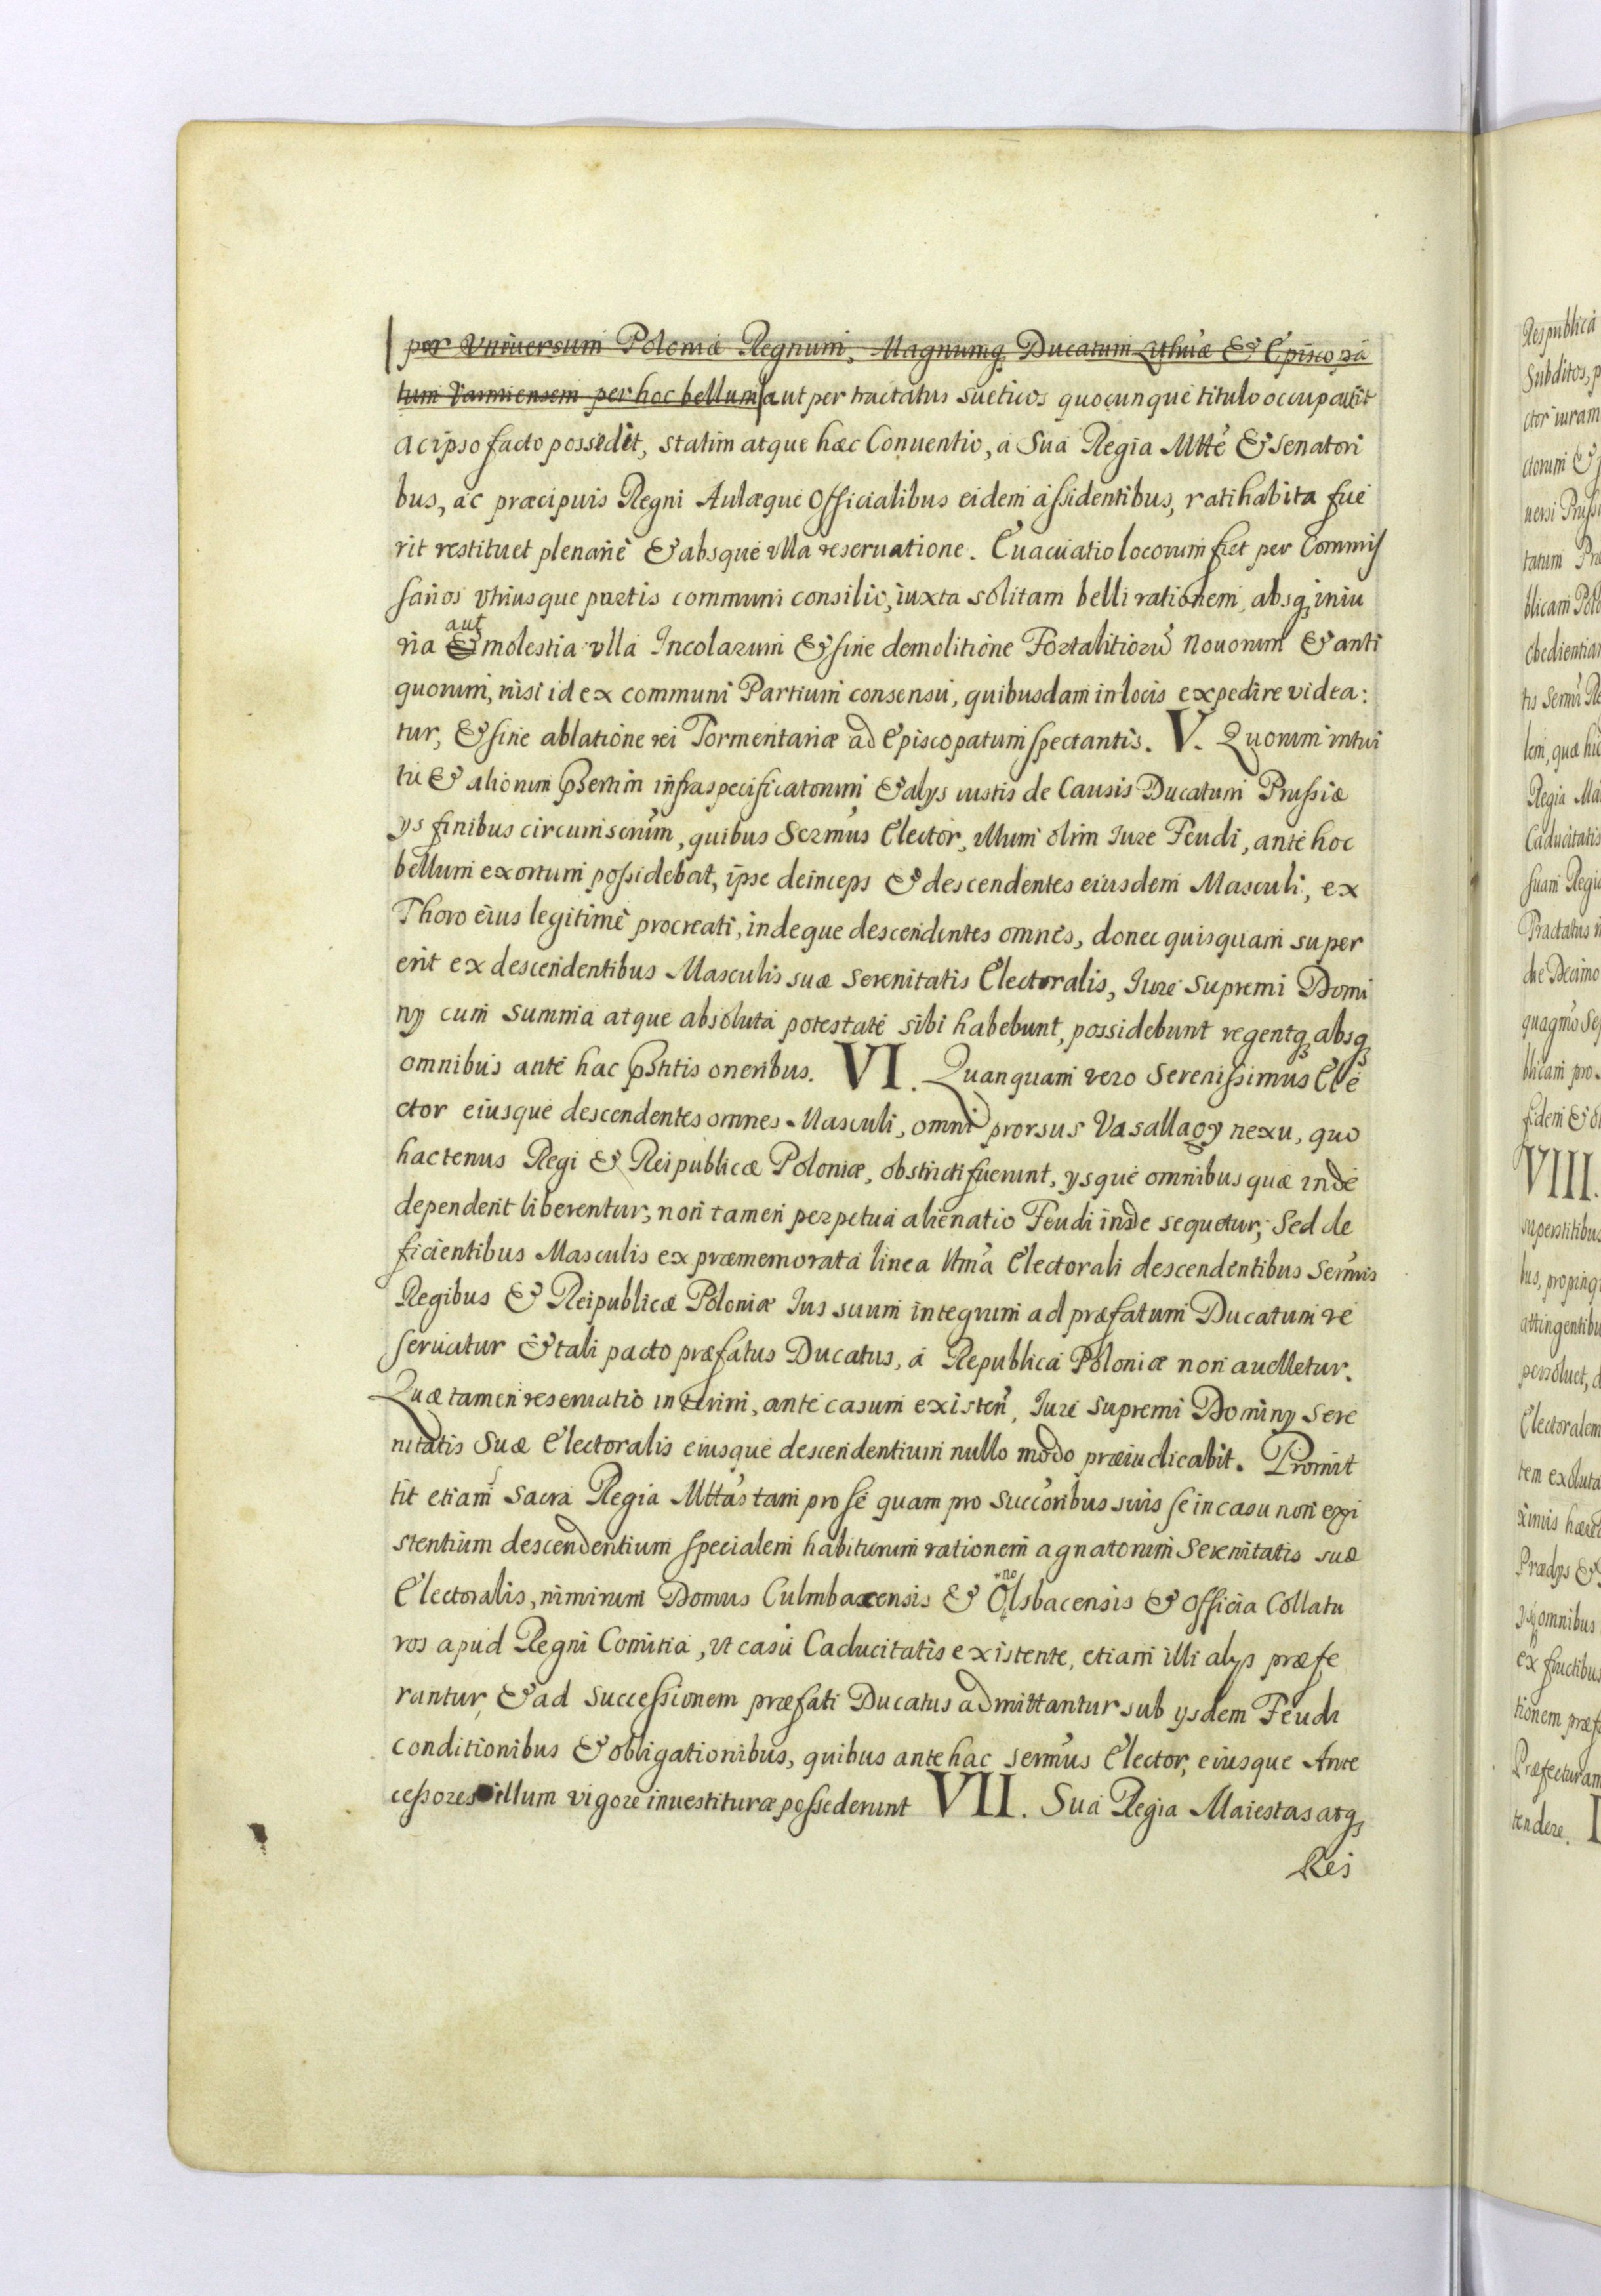 per Vniuersum Poloniæ Regnum, Magnumq, Ducatum Lythuiæ & Episcopa
tum Varmiensem per hoc bellum aut per tractatus sueticos quocunque titulo occupauit
ac ipso facto possedit, statim atque hæc Conuentio, á Suá Regia Mtte & Senatori
bus, ac præcipuis Regni Aulæque Officialibus eidem assidentibus, ratihabita fue
rit restituet plenarie & absque vlla reseruatione. Euacuatio locorum fiet per Commis
sarios vtriusque partis communi consilio, iuxta solitam belli rationem, absq, iniu
ria & aut molestia vlla Incolarum & sine demolitione Fortalitiorũ Nouorum & anti
quorum, nisi id ex communi Partium consensu, quibusdam in locis expedire videa:
tur, & sine ablatione rei Tormentariæ ad Episcopatum spectantis. V. Quorum intui
tu & aliorum psertim infraspecificatorum & alys iustis de Causis Ducatum Prussiæ
ys finibus circumscrum, quibus Sermus Elector, illum olim Iure Feudi, ante hoc
bellum exortum possidebat, ipse deinceps & descendentes eiusdem Masculi, ex
Thoro eius legitime procreati, indeque descendentes omnes, donec quisquam super
erit ex descendentibus Masculis suæ Serenitatis Electoralis, Iure Supremi Domi
ny cum Summa atque absoluta potestate sibi habebunt, possidebunt regentq, absq,
omnibus ante hac pstitis oneribus. VI. Quanquam vero Serenissimus Ele
ctor eiusque descendentes omnes Masculi, omni prorsus Vasallagy nexu, quo
hactenus Regi & Reipublicæ Poloniæ, obstricti fuerunt, ysque omnibus quæ inde
dependent liberentur, non tamen perpetua alienatio Feudi inde sequetur; Sed de
ficientibus Masculis ex præmemorata linea Mascula Electorali descendentibus Sermis
Regibus & Reipublicæ Poloniæ Ius suum integrum ad præfatum Ducatum re
seruatur & tali pacto præfatus Ducatus, á Republica Poloniæ non auelletur.
Quæ tamen reseruatio interim, ante casum existen, Iuri Supremi Dominy Sere
nitatis Suæ Electoralis eiusque descendentium nullo modo præiudicabit. Promit
tit etiam Sacra Regia Mttas tam pro se quam pro Succoribus suis se in casu non exi
stentium descendentium specialem habiturum rationem agnatorum Serenitatis suæ
Electoralis, nimirum Domus Culmbacensis & Olsbacensis & Officia Collatu
ros apud Regni Comitia, vt casu Caducitatis existente, etiam illi alys præfe
rantur, & ad Successionem præfati Ducatus admittantur sub ysdem Feudi
conditionibus & obligationibus, quibus ante hac Sermus Elector, eiusque Ante
cessores illum vigore inuestituræ possederunt VII. Sua Regia Maiestas atq,
Rei
Respublica
Subditos, p
ctor iuram
ctorum &
uersi Pruss
tatum Pru
blicam Polo
obedientia
tis Sermi Re
lem, quæ hu
Regia Ma
Caducitatis
suam Regia
Tractatus
die Decimo
quagmo Se
blicam pro
fidem &
VIII.
superstitibus
bus, proping
attingentibu
persoluet,
Electoralem
tem exoluta
ximis hære
Prædys &
ysq, omnibus
ex fructibus
tionem præf
Præfecturam
tendere. I